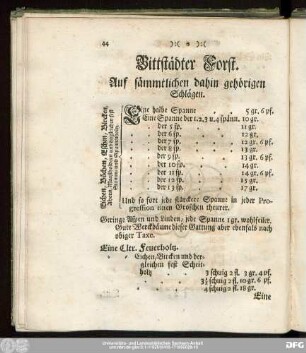 44
Vittstädter Forst.
Auf sämmtlichen dahin gehörigen
Schlägen.
Eichen, Büchen, Elschen, Bircken,
Eine halbe Spanne . . 5 gr. 6 pf.
Eine Spanne der 1.2.3 u. 4 spänn. 10 gr.
der 5 sp. . 11 gr.
der 6 sp. . 12 gr.
der 7 sp. . 12 gr. 6 pf.
der 8 sp. . 13 gr.
der 9 sp. . 13 gr. 6 pf.
der 10 sp. . 14 gr.
der 11 sp. . 14 gr. 6 pf.
der 12 sp. . 15 gr.
der 13 sp. . 17 gr.
Und so fort jede stärckere Spanne in jeder Pro-
gression einen Groschen theurer.
Geringe Aspen und Linden, jede Spanne 1 gr. wohlfeiler.
Gute Werckbäume dieser Gattung aber ebenfals nach
obiger Taxe.
Eine Clft. Feuerholtz.
Eichen, Bircken und der-
gleichen fest Scheit-
holtz 3 schuig 2 fl. 3 gr. 4 pf.
3½ schuig 2 fl. 10 gr. 6 pf.
4 schuig 2 fl. 18 gr.
Eine